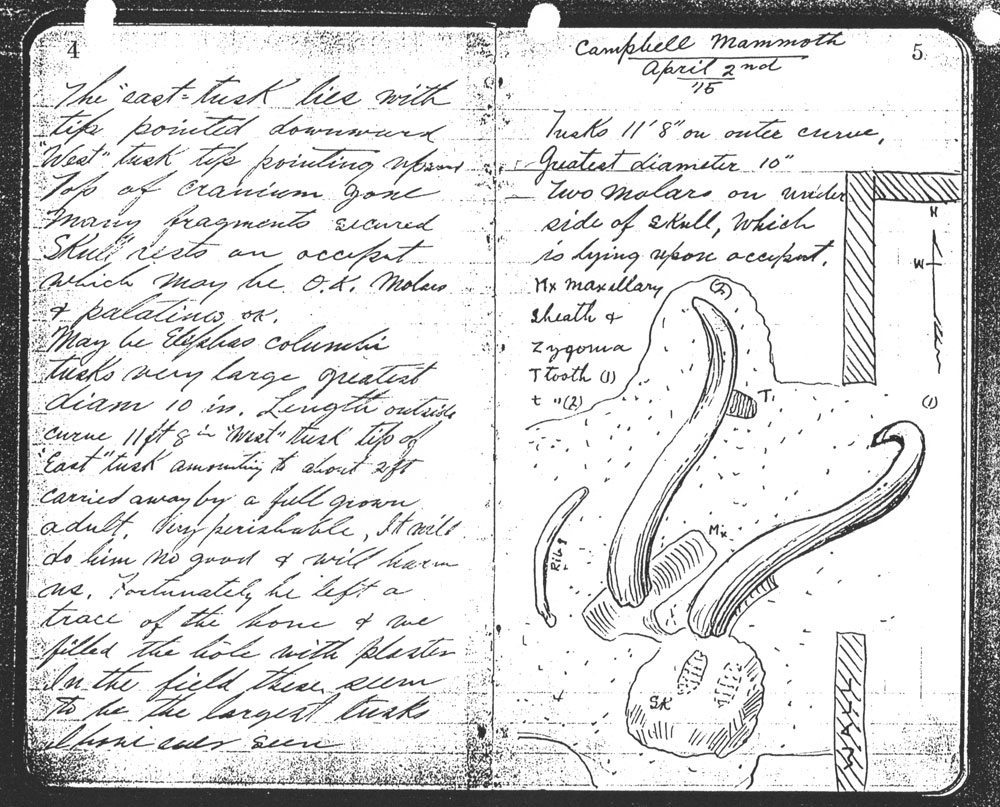 4
The "east" tusk lies with
tip pointed downward
"West" tusk tip pointing upward
Top of cranium gone
many fragments secured
Skull rests on occiput
which may be O.K. Molars
& palatines ok.
May be Elephas columbi
tusks very large greatest
diam 10 in. Length outside
curve 11 ft 8 in "West" tusk tip of
"East" tusk amounting to about 2 ft
carried away by a full grown
adult. Very perishable, It will
do him no good & will harm
us. Fortunately he left a
trace of the bone & we
filled the hole with plaster
In the field these seem
to be the largest tusks
I have ever seen
5
Campbell Mammoth
April 2nd
'15
Tusks 11' 8" on outer curve,
Greatest diameter 10"
Two Molars on under
side of skull, which
is lying upon occiput.
Mx maxillary
sheath &
Zygoma
T tooth (1)
t " (2)
(2)
N
W
T,
(1)
Rib 9
Mx
SK